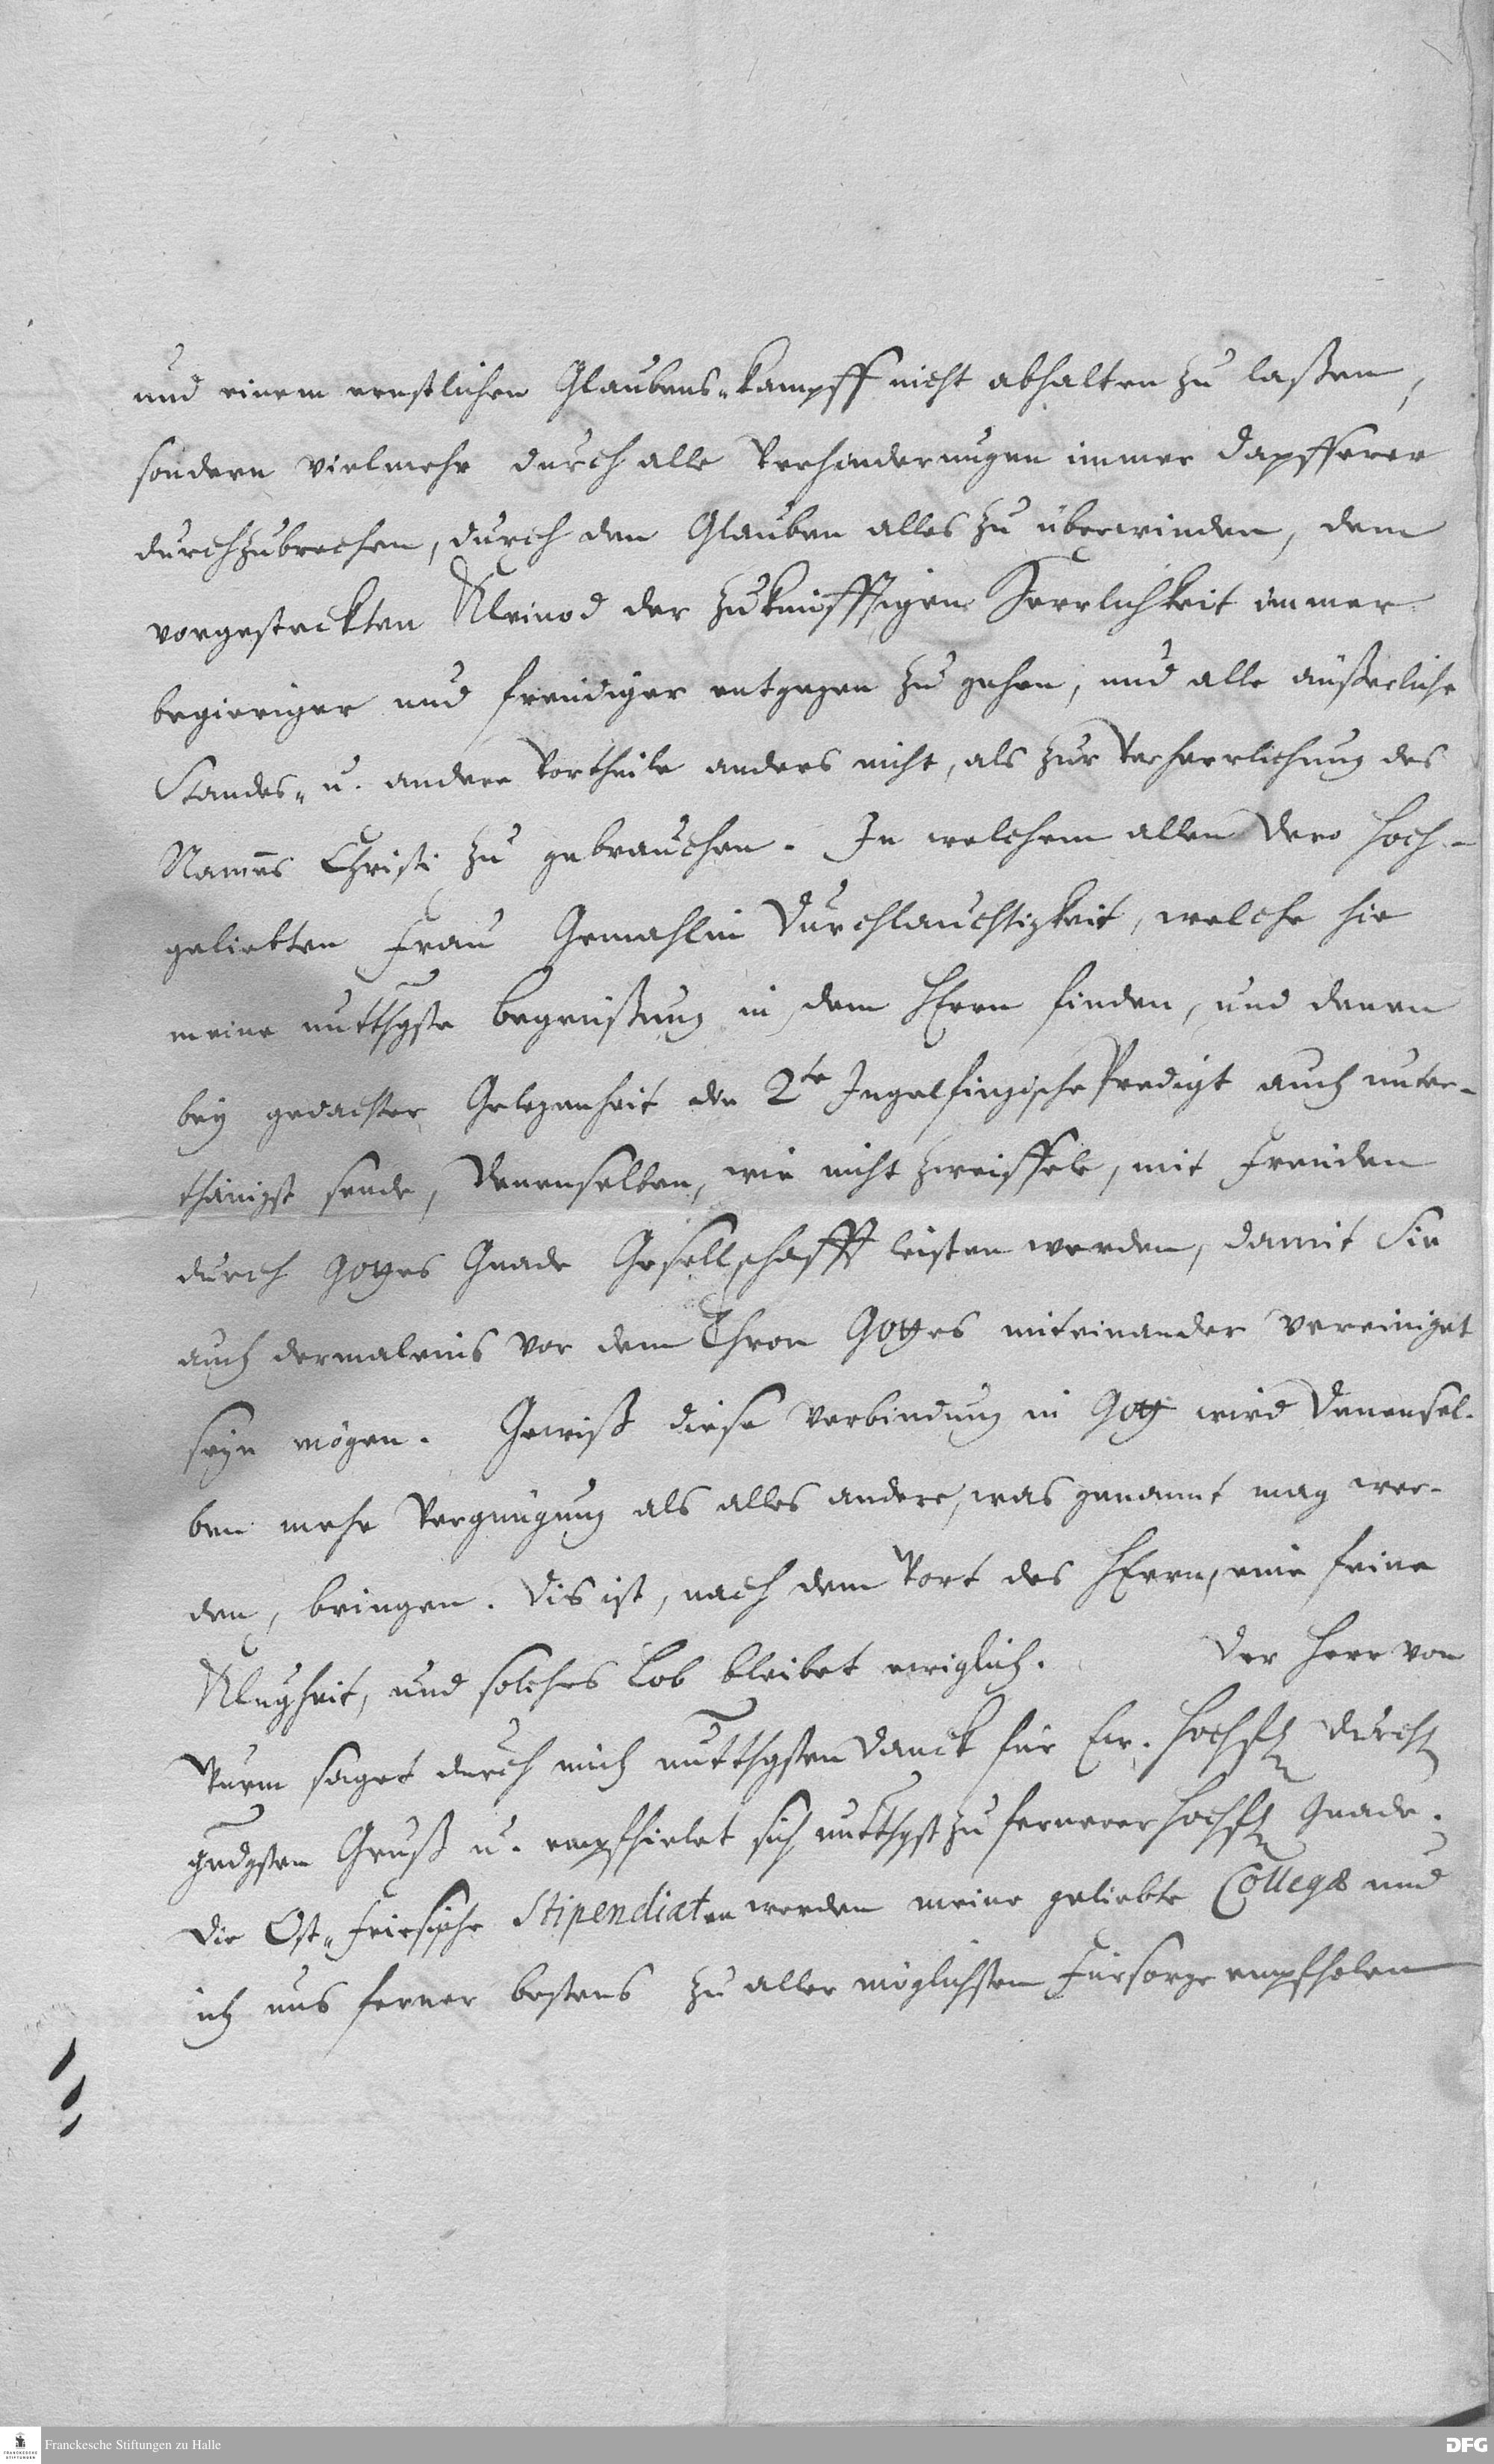 und einem ernstlichen Glaubens-kampff nicht abhalten zu laßen,
sondern vielmehr durch alle Verhinderungen immer dapfferer
durchzubrechen, durch den Glauben alles zu überwinden, dem
vorgesteckten Kleinod der zukünfftigen Herrlichkeit immer
begieriger und freudiger entgegen zu gehen, und alle äußerliche
Standes- u. andere Vortheile anders nicht, als zur Verherrlichung des
Namens Christi zu gebrauchen. In welchem allen Dero hoch-
geliebten Frau Gemahlin Durchlauchtigkeit, welche hie
meine untthgste Begrüßung in dem HErrn finden, und denen
bey gedachter Gelegenheit die 2te Ingelfingische Predigt auch unter-
thänigst sende, Denenselben, wie nicht zweiffele, mit Freuden
durch Gottes Gnade Gesellschafft leisten werden, damit Sie
auch dermaleins vor dem Thron Gottes miteinander vereiniget
seyn mögen. Gewiß diese Verbindung in Gott wird Denensel-
ben mehr Vergnügung als alles andere, was genannt mag wer-
den, bringen. Dis ist, nach dem Wort des HErrn, eine feine
Klugheit, und solches Lob bleibet ewiglich. Der Herr von
Wurm saget durch mich untthgsten Danck für Ew. Hochfl Durchl
gndgsten Gruß u. empfhielet sich untthgst zu fernerer Hochfl Gnade.
Die Ost-Friesische Stipendiaten werden meine geliebte Collegæ und
ich uns ferner bestens zu aller möglichsten Fürsorge empfholen
Franckesche Stiftungen zu Halle
DFG